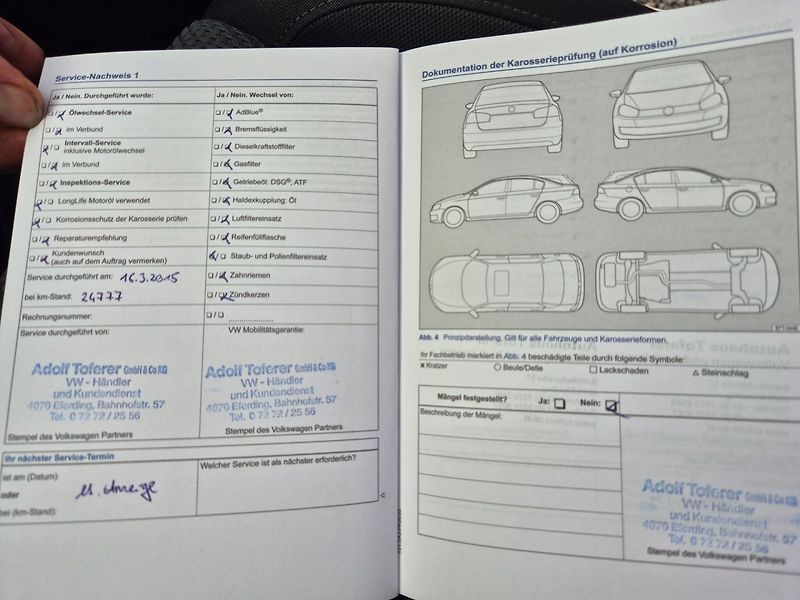 Service-Nachweis 1
Ja / Nein. Durchgeführt wurde:
Ölwechsel-Service
im Verbund
Intervall-Service
inklusive Motorölwechsel
im Verbund
Inspektions-Service
LongLife Motoröl verwendet
Korrosionsschutz der Karosserie prüfen
Reparaturempfehlung
Kundenwunsch
(auch auf dem Auftrag vermerken)
Service durchgeführt am: 16.3.2015
bei km-Stand: 24777
Rechnungsnummer:
Service durchgeführt von:
Adolf Toferer GmbH & Co KG
VW - Händler
und Kundendienst
4070 Eferding, Bahnhofstr. 57
Tel. 0 72 72 / 25 56
Stempel des Volkswagen Partners
Ja / Nein. Wechsel von:
AdBlue®
Bremsflüssigkeit
Dieselkraftstofffilter
Gasfilter
Getriebeöl: DSG®, ATF
Haldexkupplung: Öl
Luftfiltereinsatz
Reifenfüllflasche
Staub- und Pollenfiltereinsatz
Zahnriemen
Zündkerzen
VW Mobilitätsgarantie:
Adolf Toferer GmbH & Co KG
VW - Händler
und Kundendienst
4070 Eferding, Bahnhofstr. 57
Tel. 0 72 72 / 25 56
Stempel des Volkswagen Partners
Ihr nächster Service-Termin
ist am (Datum):
oder
bei (km-Stand):
lt. Anzeige
Welcher Service ist als nächster erforderlich?
Dokumentation der Karosserieprüfung (auf Korrosion)
Abb. 4 Prinzipdarstellung. Gilt für alle Fahrzeuge und Karosserieformen.
Ihr Fachbetrieb markiert in Abb. 4 beschädigte Teile durch folgende Symbole:
x Kratzer
Beule/Delle
Lackschaden
Steinschlag
Mängel festgestellt? Ja: Nein:
Beschreibung der Mängel:
Adolf Toferer GmbH & Co KG
VW - Händler
und Kundendienst
4070 Eferding, Bahnhofstr. 57
Tel. 0 72 72 / 25 56
Stempel des Volkswagen Partners